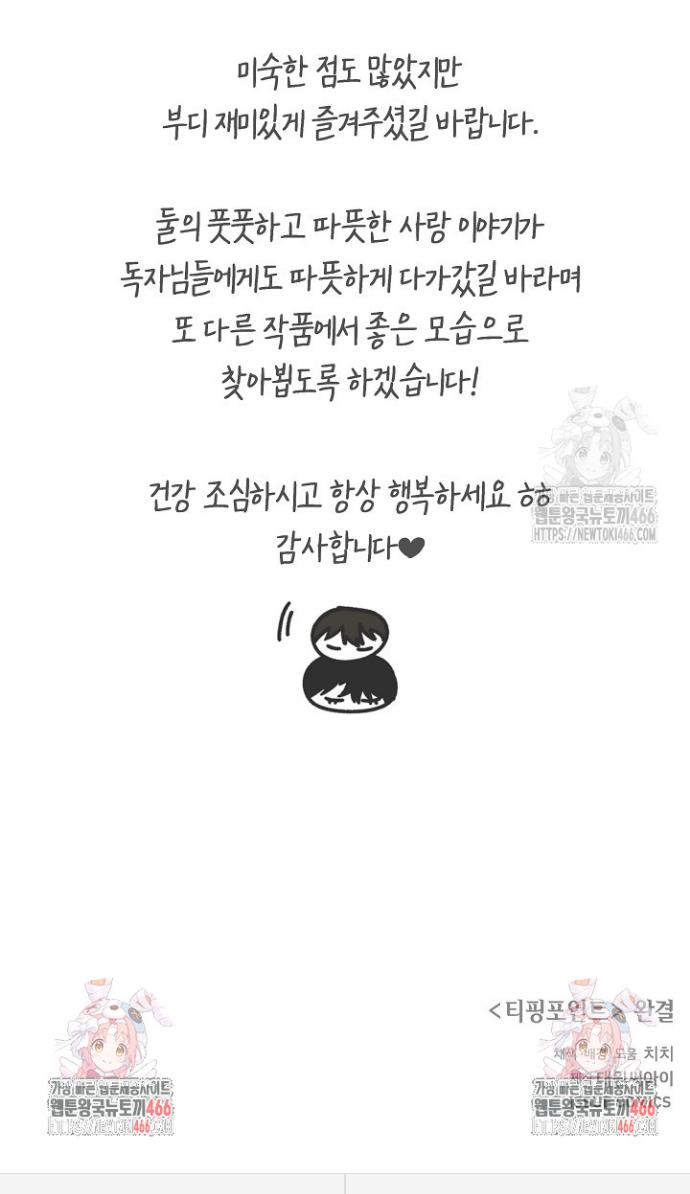 미숙한 점도 많았지만
부디 재미있게 즐겨주셨길 바랍니다.
둘의 풋풋하고 따뜻한 사랑 이야기가
독자님들에게도 따뜻하게 다가갔길 바라며
또 다른 작품에서 좋은 모습으로
찾아뵙도록 하겠습니다!
건강 조심하시고 항상 행복하세요 ㅎㅎ
감사합니다♥
가장 빠른 웹툰제공사이트
웹툰왕국뉴토끼466
HTTPS://NEWTOKI466.COM
<티핑포인트> 완결
채색 배경 도움 치치
가장 빠른 웹툰제공사이트
웹툰왕국뉴토끼466
HTTPS://NEWTOKI466.COM
가장 빠른 웹툰제공사이트
웹툰왕국뉴토끼466
HTTPS://NEWTOKI466.COM